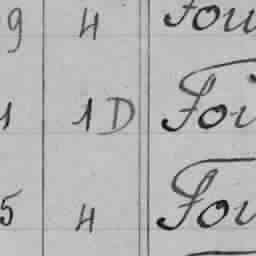 9 4 Fou
1 1D Foi
5 4 Fou